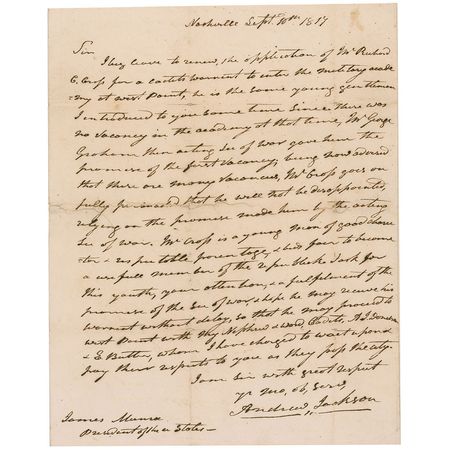 Nashville Sept. 10th 1817
Sir
I beg leave to renew, the application of Mr Richard
C. Crop for a cadets warrant to enter the military acade
my at west Point, he is the same young gentleman
I introduced to you some time since. there was
no vacancy in the academy at that time, Mr George
Graham then acting Sec of war gave him the
promise of the first vacancy, being now advised
that there are many vacancies, Mr Crop goes on
fully persuaded that he will not be disappointed,
relying on the promise made him by the acting
Sec of war. Mr Crop is a young man of good charac
ter & respectable parentage, & bids fair to become
a usefull member of the republick I ask for
this youth, your attention, & a fulfilment of the
promise of the Sec of war & hope he may receive his
warrant without delay, so that he may proceed to
west Point with my Nephew & ward, Cadets, A. J. Donelson
& E Butler, whom I have charged to wait upon &
pay their respects to you as they pass the city
I am Sir with great respect
yr mo, ob, Serv,
Andrew, Jackson
James Munroe
President of the u States—